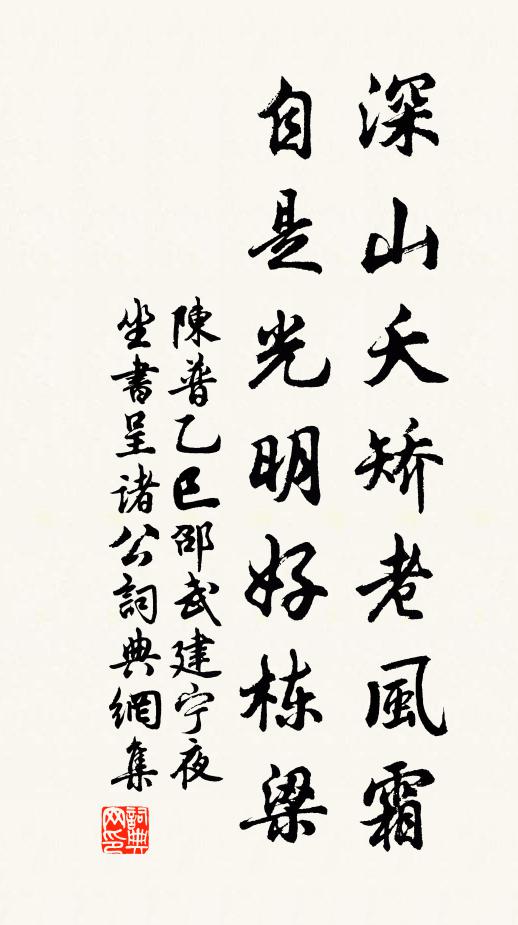 深山夭矫老風霜
自是光明好栋梁
陳普乙巳邵武建宁夜
坐書呈諸公詞典網集
詞典网印